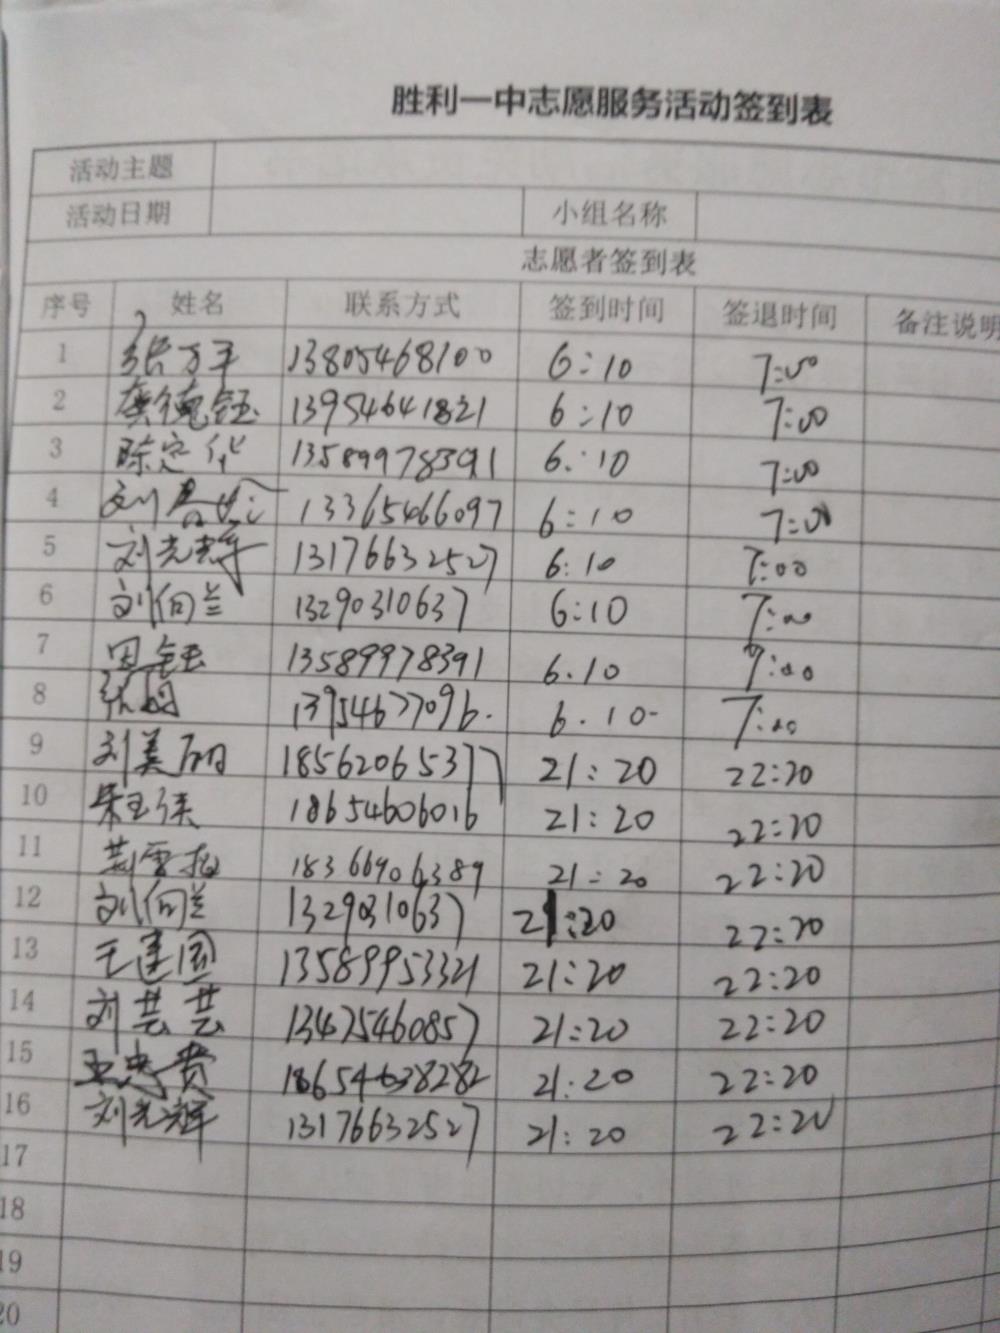 胜利一中志愿服务活动签到表
活动主题
活动日期 小组名称
志愿者签到表
序号 姓名 联系方式 签到时间 签退时间 备注说明
1 张万平 13805468100 6:10 7:00
2 龚德钰 13954641821 6:10 7:00
3 陈定华 13589978391 6:10 7:00
4 刘 13365466097 6:10 7:00
5 刘光辉 13176632527 6:10 7:00
6 刘向兰 13290310637 6:10 7:00
7 田钰 13589978391 6.10 7:00
8 张娟 13954677096. 6.10 7:00
9 刘美丽 18562065377 21:20 22:20
10 朱玉 18654606016 21:20 22:20
11 荆雪 18366906389 21:20 22:20
12 刘向兰 13290310637 21:20 22:20
13 王建国 13589953321 21:20 22:20
14 刘芸芸 13475460857 21:20 22:20
15 18654638282 21:20 22:20
16 刘光辉 13176632527 21:20 22:20
17
18
19
20